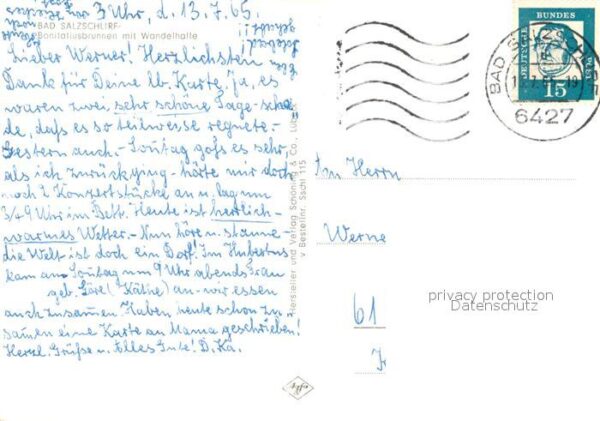 3 Uhr, d. 13.7.65.
BAD SALZSCHLIRF
Bonifatiusbrunnen mit Wandelhalle
Lieber Werner! Herzlichsten
Dank für Deine lb. Karte. Ja, es
waren zwei sehr schöne Tage - scha-
de, daß es so teilweise regnete.-
Gestern auch - Sonntag goß es sehr
als ich zurückging - hörte mir doch
noch 2 Konzertstücke an u. lag um
3/49 Uhr im Bett. Heute ist herrlich
warmes Wetter. - Nun höre u. staune -
die Welt ist doch ein Dorf! Im Hubertus
kam am Sonntag um 9 Uhr abends Frau
geb. (Käthe) an - wir essen
auch zusammen. Haben heute schon zu-
samen eine Karte an Mama geschrieben!
Herzl. Grüße u. Alles Gute! D. Ka.
Hersteller und Verlag Schöning & Co., Lübeck
Bestellnr. Sschl 115
DEUTSCHE BUNDESPOST
15
BAD SALZSCHLIRF
6427
Herrn
Werne
61
privacy protection
Datenschutz